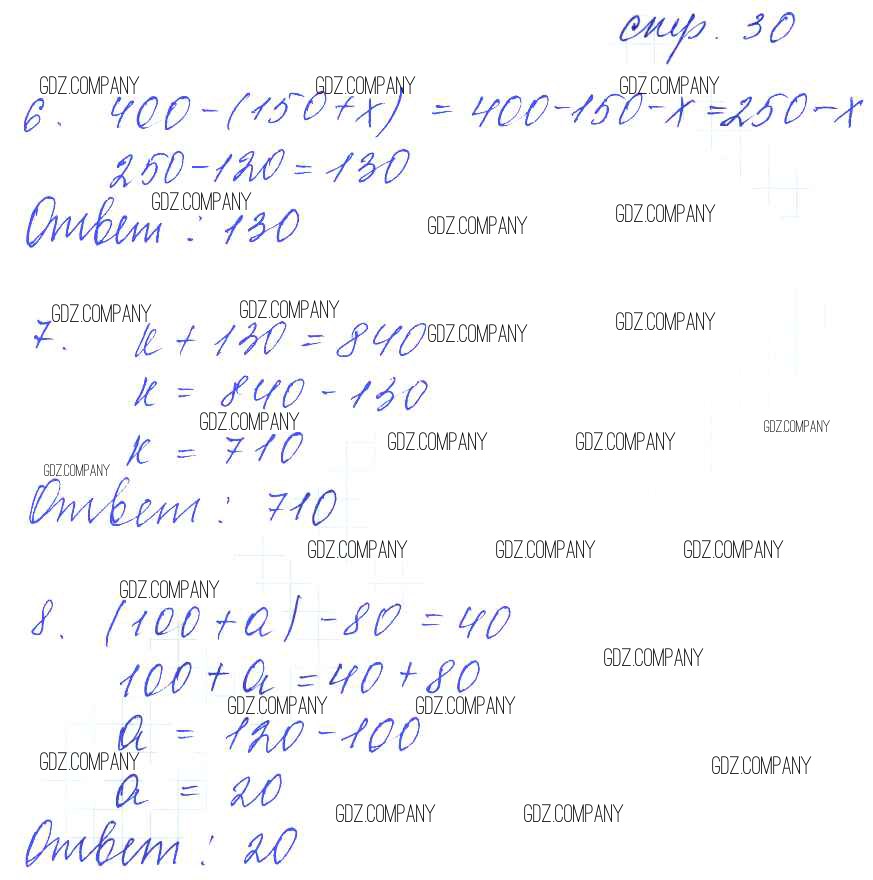 стр. 30
GDZ.COMPANY GDZ.COMPANY GDZ.COMPANY
6. 400-(150+x) = 400-150-x=250-x
250-120=130
GDZ.COMPANY GDZ.COMPANY GDZ.COMPANY
Ответ: 130
GDZ.COMPANY GDZ.COMPANY GDZ.COMPANY GDZ.COMPANY
7. к + 130 = 840
к = 840 - 130
GDZ.COMPANY GDZ.COMPANY GDZ.COMPANY GDZ.COMPANY
к = 710
GDZ.COMPANY
Ответ: 710
GDZ.COMPANY GDZ.COMPANY GDZ.COMPANY
GDZ.COMPANY
8. (100+a)-80=40
GDZ.COMPANY
100+a=40+80
GDZ.COMPANY GDZ.COMPANY
a = 120-100
GDZ.COMPANY GDZ.COMPANY
a = 20
GDZ.COMPANY GDZ.COMPANY
Ответ: 20